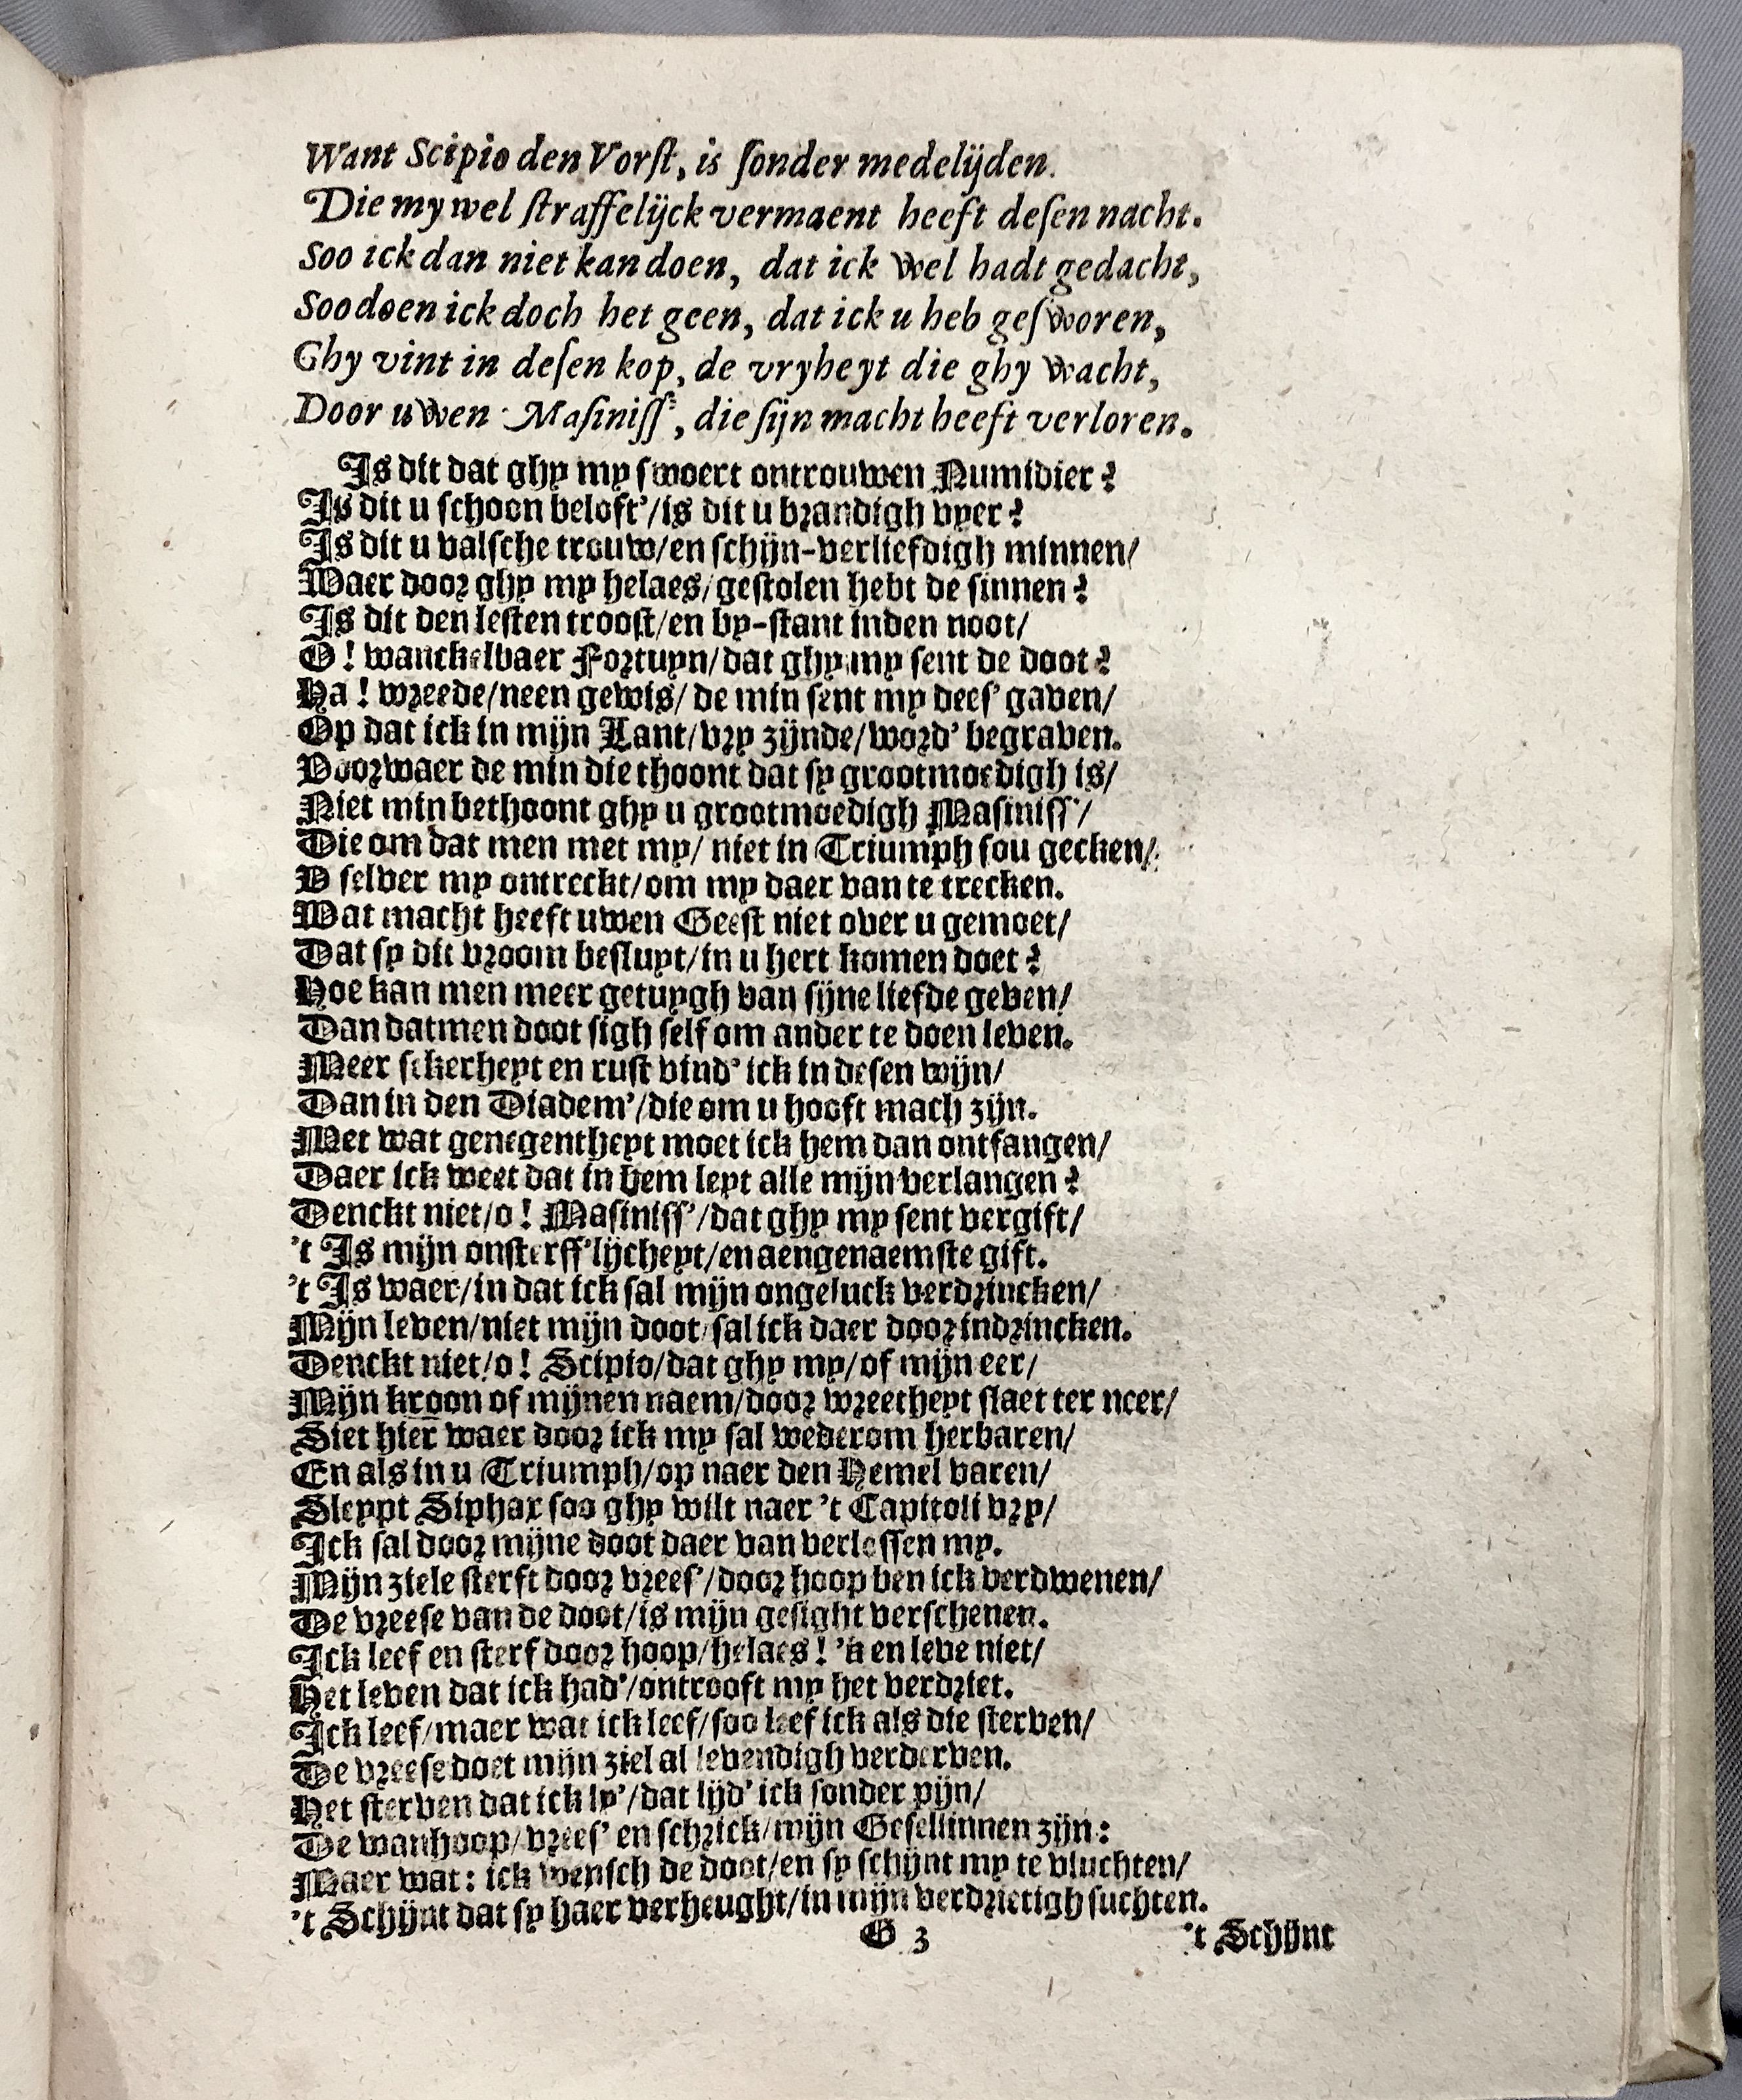 Want Scipio den Vorſt, is ſonder medelijden.
Die my wel ſtraffelijck vermaent heeft deſen nacht.
Soo ick dan niet kan doen, dat ick wel hadt gedacht,
Soo doen ick doch het geen, dat ick u heb geſworen,
Ghy vint in deſen kop, de vryheyt die ghy wacht,
Door uwen Maſiniſſ', die ſijn macht heeft verloren.
Is dit dat ghy my ſwoert ontrouwen Numidier?
Is dit u ſchoon beloft'/is dit u brandigh vyer?
Is dit u valſche trouw/en ſchijn-verliefdigh minnen/
Waer door ghy my helaes/geſtolen hebt de ſinnen?
Is dit den leſten trooſt/en by-ſtant inden noot/
O! wanckelbaer Fortuyn/dat ghy my ſent de doot?
Ha! wreede/neen gewis/de min ſent my deeſ' gaven/
Op dat ick in mijn Lant/vry zijnde/word' begraven.
Voorwaer de min die thoont dat ſy grootmoedigh is/
Niet min bethoont ghy u grootmoedigh Maſiniſſ'/
Die om dat men met my/niet in Triumph ſou gecken/
V ſelver my ontreckt/om my daer van te trecken.
Wat macht heeft uwen Geeſt niet over u gemoet/
Dat ſy dit vroom beſluyt/in u hert komen doet?
Hoe kan men meer getuygh van ſijne liefde geven/
Dan datmen doot ſigh ſelf om ander te doen leven.
Meer ſekerheyt en ruſt vind' ick in deſen wijn/
Dan in den Diadem'/die om u hooft mach zijn.
Met wat genegentheyt moet ick hem dan ontfangen/
Daer ick weet dat in hem leyt alle mijn verlangen?
Denckt niet/o! Maſiniſſ'/dat ghy my ſent vergift/
't Is mijn onſterff'lijcheyt/en aengenaemſte gift.
't Is waer/in dat ick ſal mijn ongeluck verdrincken/
Mijn leven/niet mijn doot/ſal ick daer door indrincken.
Denckt niet/o! Scipio/dat ghy my/of mijn eer/
Mijn kroon of mijnen naem/door wreetheyt ſlaet ter neer/
Siet hier waer door ick my ſal wederom herbaren/
En als in u Triumph/op naer den Hemel varen/
Sleypt Siphax ſoo ghy wilt naer 't Capitoli vry/
Ick ſal door mijne doot daer van verloſſen my.
Mijn ziele ſterft door vreeſ'/door hoop ben ick verdwenen/
De vreeſe van de doot/is mijn geſight verſchenen.
Ick leef en ſterf door hoop/helaes! 'k en leve niet/
Het leven dat ick had'/ontrooft my het verdriet.
Ick leef/maer wat ick leef/ſoo leef ick als die ſterven/
De vreeſe doet mijn ziel al levendigh verderven.
Het ſterven dat ick ly'/dat lijd' ick ſonder pijn/
De wanhoop/vreeſ' en ſchrick/mijn Geſellinnen zijn:
Maer wat: ick wenſch de doot/en ſy ſchijnt my te vluchten/
't Schijnt dat ſy haer verheught/in mijn verdrietigh ſuchten.
G 3 't Schijnt